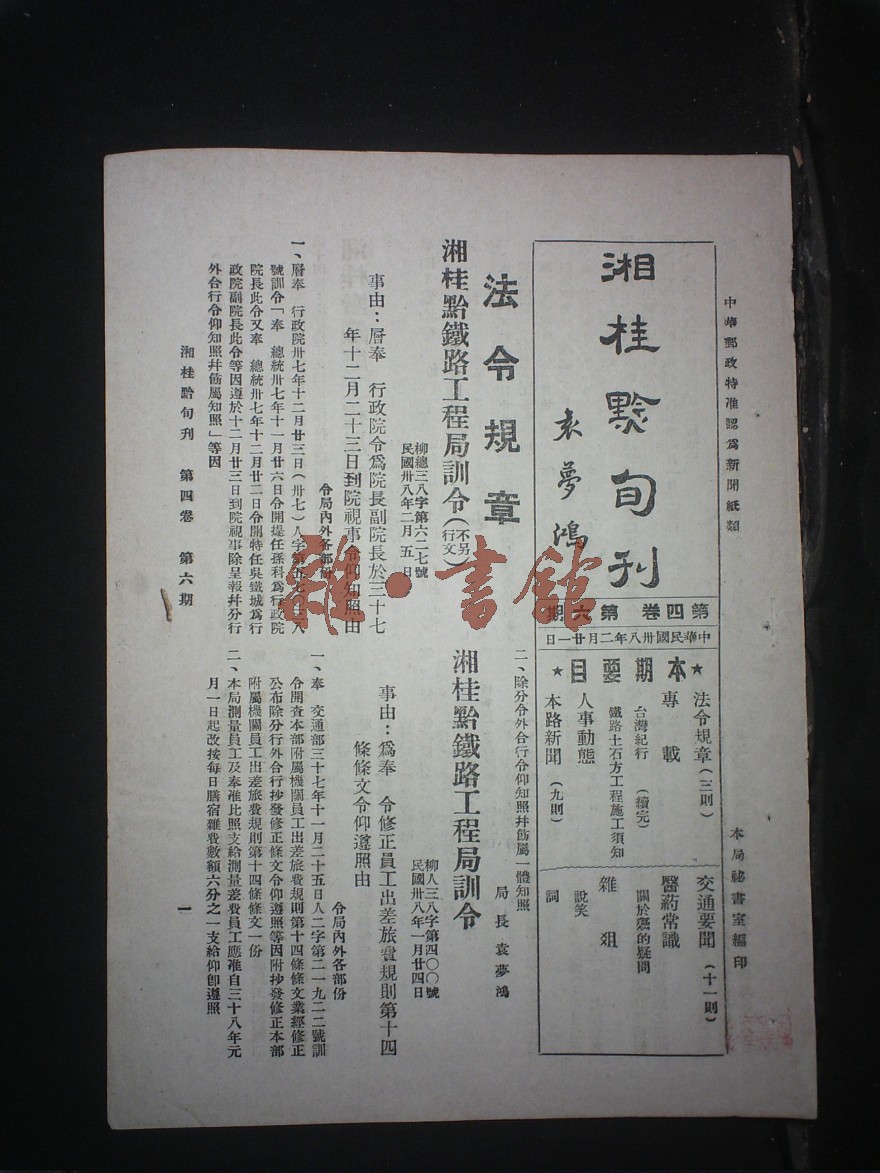 中華郵政特准認爲新聞紙類
本局祕書室編印
湘桂黔旬刊
袁夢鴻
第四卷 第六期
中華民國卅八年二月廿一日
★本期要目★
法令規章(三則)
專載
台灣紀行 (續完)
鐵路土石方工程施工須知
人事動態
本路新聞 (九則)
交通要聞 (十一則)
醫药常識
關於癌的疑問
雜俎
說笑
詞
法令規章
湘桂黔鐵路工程局訓令(不另行文)
柳總三八字第六二七號
民國卅八年二月五日
事由:層奉 行政院令爲院長副院長於三十七
年十二月二十三日到院視事令仰知照由
令局內外各部份
一、層奉 行政院卅七年十二月廿三日(卅七)八字第五七 三八
號訓令「奉 總統卅七年十一月廿六日令開提任孫科爲行政院
院長此令又奉 總統卅七年十二月廿二日令開特任吳鐵城爲行
政院副院長此令等因遵於十二月廿三日到院視事除呈報幷分行
外合行令仰知照幷飭屬知照」等因
二、除分令外合行令仰知照幷飭屬一體知照
局長 袁夢鴻
湘桂黔鐵路工程局訓令
柳人三八字第四〇〇號
民國卅八年一月廿四日
事由:爲奉 令修正員工出差旅費規則第十四
條條文令仰遵照由
令局內外各部份
一、奉 交通部三十七年十一月二十五日人二字第二一九二二號訓
令開查本部附屬機關員工出差旅費規則第十四條條文業經修正
公布除分行外合行抄發修正條文令仰遵照等因附抄發修正本部
附屬機關員工出差旅費規則第十四條條文一份
二、本局測量員工及奉准比照支給測量差費員工應准自三十八年元
月一日起改按每日膳宿雜費數額六分之一支給仰卽遵照
湘桂黔旬刊 第四卷 第六期
一
雜·書館